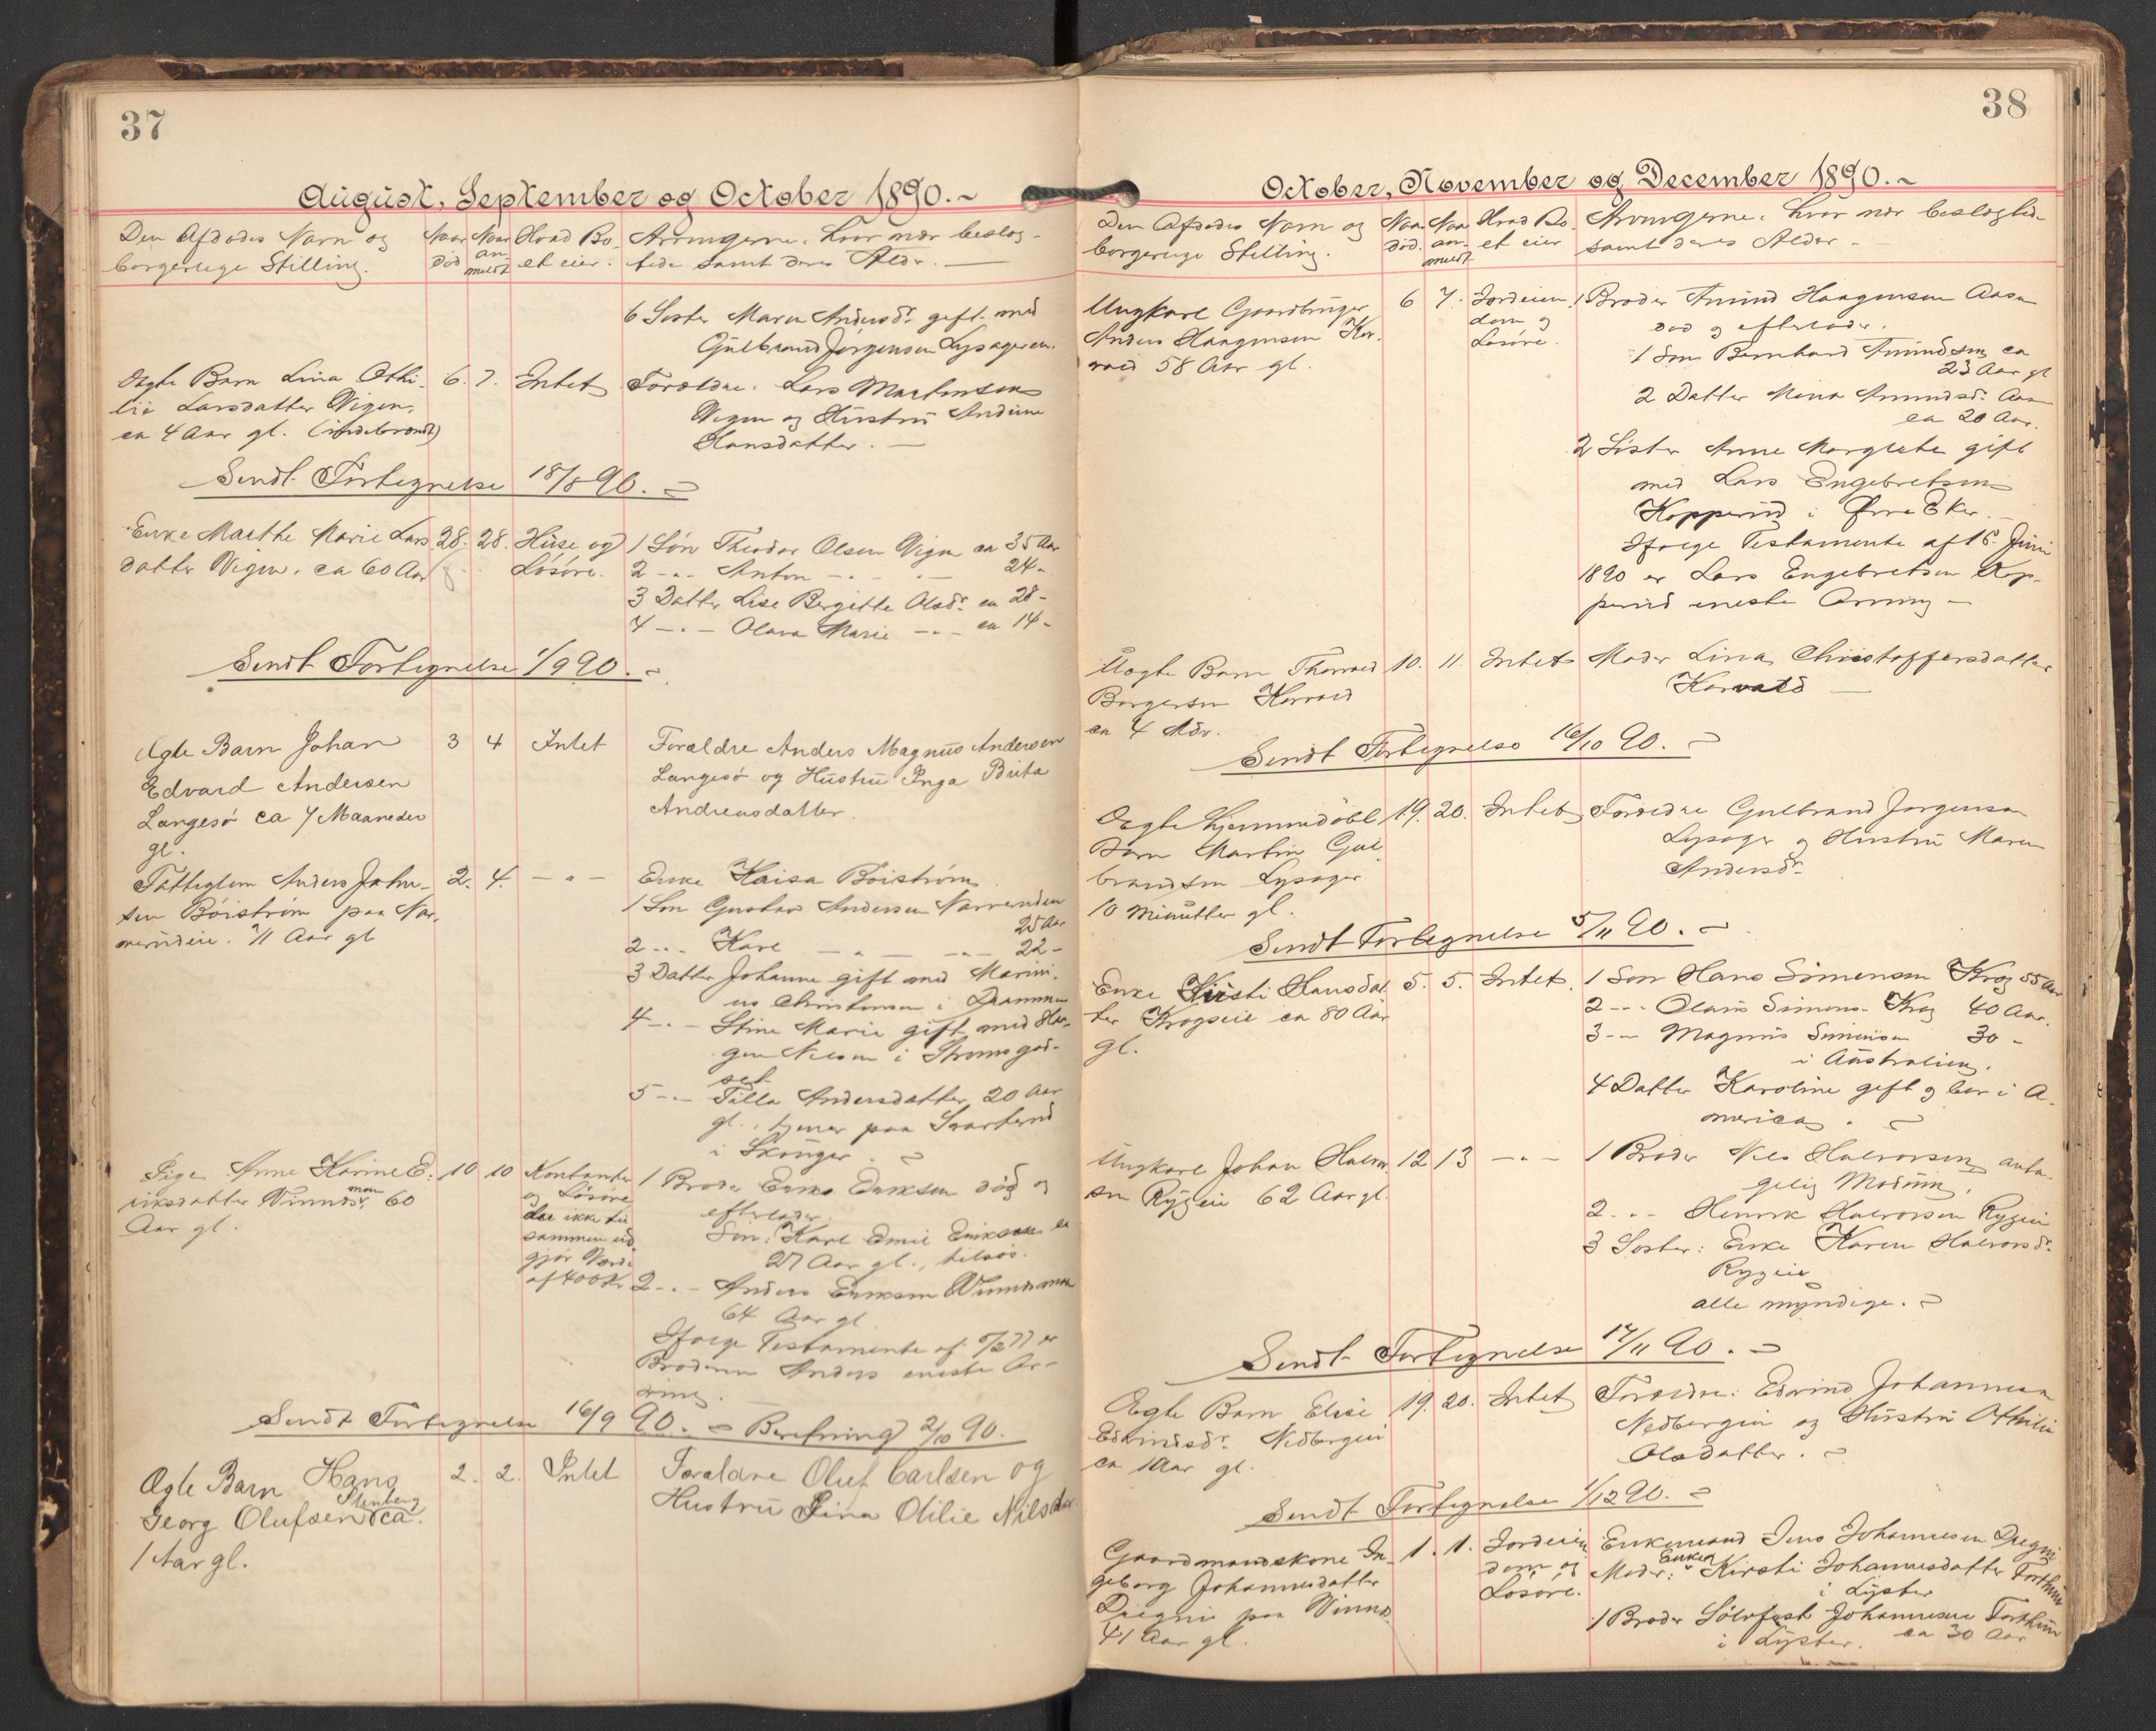 37
August, September og October 1890.
Den Afdødes Navn og
borgerlige Stilling.
Naar
død
Naar
an-
meldt
Hvad Bo-
et eier.
Arvingerne. hvor nær beslæg-
tede samt deres Alder.
6 Søster Maren Andersdr. gift med
Gulbrand Jørgensen Lysagereie.
Ægte Barn Lina Othi-
lie Larsdatter Vigen,
ca 4 Aar gl. (indebrændt)
6. 7. Intet
Forældre. Lars Martinsen
Vigen og Hustru Andrine
Hansdatter.
Sendt Fortegnelse 18/8 90.
Enke Marthe Marie Lars
datter Vigen. ca 60 Aar
28. 28. Huse og
Løsøre.
1 Søn Theodor Olsen Vigen ca 35 Aar
2 -"- Anton -"- 24 -
3 Datter Lise Bergitte Olsdr. ca 28 -
4 -"- Olava Marie -"- ca 14 -
Sendt Fortegnelse 1/9 90.
Ægte Barn Johan
Edvard Andersen
Langesø ca 7 Maaneder
gl.
3 4 Intet
Forældre Anders Magnus Andersen
Langesø og Hustru Inga Brita
Andreasdatter.
Fattiglem Anders Johan-
sen Böiström paa Nar-
verudeie. 71 Aar gl
2. 4. -"-
Enke Kaisa Böiström
1 Søn Gustav Andersen Narverudeie
25 Aar
2 -"- Karl -"- 22 -
3 Datter Johanne gift med Marini-
us Christensen i Drammen
4 -"- Stine Marie gift med Ha-
gen Nilsen i Strømsgod-
set
5 -"- Tilla Andersdatter 20 Aar
gl., tjener paa Svarterud
i Skouger.
Pige Anne Karine E-
riksdatter Vinnds moen 60
Aar gl.
10 10 Kontanter
og Løsøre
der ikke til
sammen ud
gjør Værdi
af 400 Kr
1 Broder Eriks Eriksen død og
efterlader.
Søn: Karl Emil Eriksen ca
27 Aar gl., tilsøs.
2 -"- Anders Eriksen Vinndsmoen
64 Aar gl.
Ifølge Testamente af /2 77 er
Broderen Anders eneste Ar-
ving.
Sendt Fortegnelse 16/9 90. Beretning 2/10 90.
Ægte Barn Hans
Georg Olufsen Stenberg ca.
1 Aar gl.
2. 2. Intet
Forældre Oluf Carlsen og
Hustru Lina Otilie Nilsdr.
38
October, November og December 1890.
Den Afdødes Navn og
borgerlige Stilling.
Naar
død.
Naar
an-
meldt
Hvad Bo-
et eier
Arvingerne. hvor nær beslægtede
samt deres Alder
Ungkarl Gaardbruger
Anders Haagensen Kor-
vald 58 Aar gl.
6 7. Jordeien
dom og
Løsøre.
1 Broder Amund Haagensen Aasen
død og efterlader.
1 Søn Bernhard Amundsen ca
23 Aar gl
2 Datter Mina Amundsdr. Aasen
ca 20 Aar.
2 Søster Anne Margrethe gift
med Lars Engebretsen
Kopperud i Øvre Eker.
Ifølge Testamente af 16 Juni
1890 er Lars Engebretsen Kop-
perud eneste Arving
Uægte Barn Thorvald
Borgersen Korvald
ca 4 Mdr.
10. 11. Intet
Moder Lina Christoffersdatter
Korvald
Sendt Fortegnelse 16/10 90.
Ægte hjemmedøbt
Barn Martin Gul
brandsen Lysager
10 Minutter gl.
19. 20. Intet
Forældre Gulbrand Jørgensen
Lysager og Hustru Maren
Andersdr.
Sendt Fortegnelse 5/11 90.
Enke Kirsti Hansdat
ter Krogseie ca 80 Aar
gl.
5. 5. Intet.
1 Søn Hans Simensen Krog 55 Aar
2 -"- Olaus Simens. Krog 40 Aar.
3 -"- Magnus Simensen 30 -
i Australien.
4 Datter Karoline gift og bor i A-
merica.
Ungkarl Johan Halvor
sen Rygeie 62 Aar gl.
12 13 -"-
1 Broder Nils Halvorsen anta-
gelig Modum,
2 -"- Henrik Halvorsen Rygeie
3 Søster: Enke Karen Halvorsdr.
Rygeie
alle myndige.
Sendt Fortegnelse 17/11 90.
Ægte Barn Elise
Edvindsdr. Nedbergeie
ca 1 Aar gl.
19. 20. Intet
Forældre. Edvind Johannesen
Nedbergeie og Hustru Othilie
Olsdatter.
Sendt Fortegnelse 1/12 90.
Gaardmandskone In-
geborg Johannesdatter
paa Vinnds.
41 Aar gl.
1. 1. Jordeien
dom og
Løsøre.
Enkemand Jens Johannesen
Moder: Enken Kirsti Johannesdatter Forthun
i Lyster
1 Broder Sølvfest Johannesen Forthun
i Lyster. ca 30 Aar